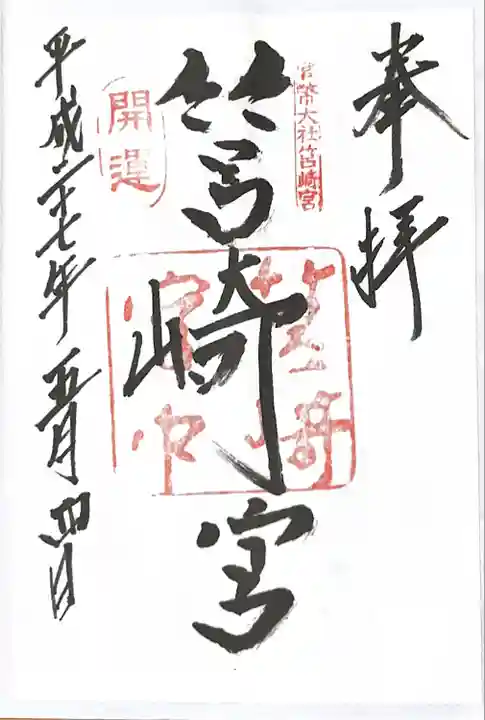 奉拝
官幣大社筥崎宮
筥崎宮
筥崎宮印
開運
平成二十七年五月四日